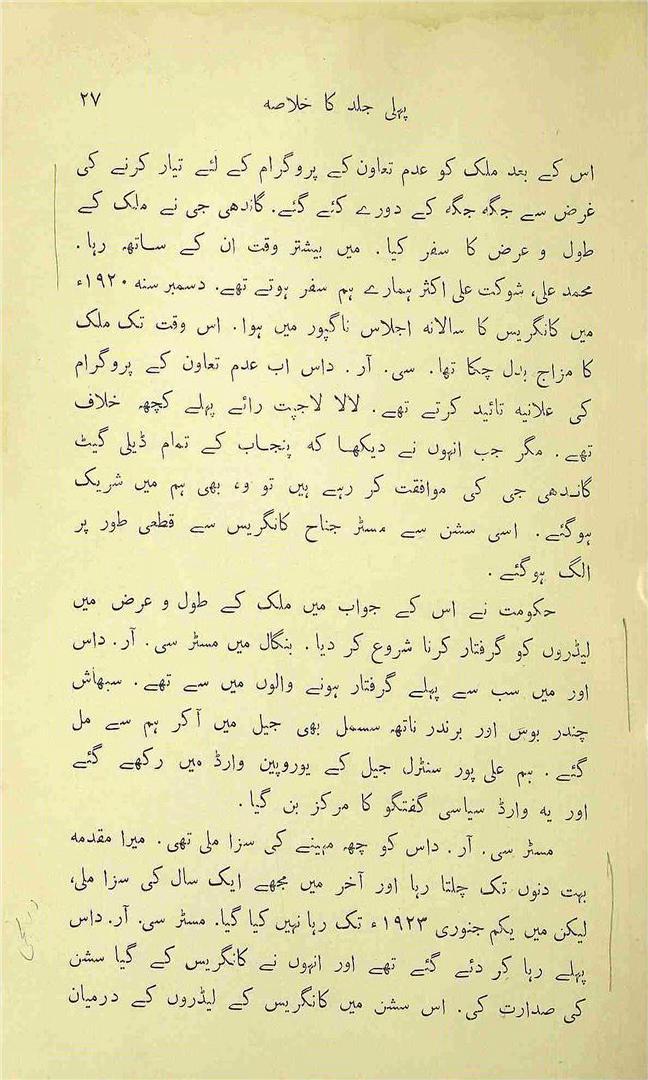 پہلی جلد کا خلاصہ ۲۷
اس کے بعد ملک کو عدم تعاون کے پروگرام کے لئے تیار کرنے کی
غرض سے جگہ جگہ کے دورے کئے گئے. گاندھی جی نے ملک کے
طول و عرض کا سفر کیا. میں بیشتر وقت ان کے ساتھ رہا.
محمد علی، شوکت علی اکثر ہمارے ہم سفر ہوتے تھے. دسمبر سنہ ۱۹۲۰ء
میں کانگریس کا سالانہ اجلاس ناگپور میں ہوا. اس وقت تک ملک
کا مزاج بدل چکا تھا. سی. آر. داس اب عدم تعاون کے پروگرام
کی علانیہ تائید کرتے تھے. لالا لاجپت رائے پہلے کچھ خلاف
تھے. مگر جب انہوں نے دیکھا کہ پنجاب کے تمام ڈیلی گیٹ
گاندھی جی کی موافقت کر رہے ہیں تو وہ بھی ہم میں شریک
ہوگئے. اسی سشن سے مسٹر جناح کانگریس سے قطعی طور پر
الگ ہوگئے.
حکومت نے اس کے جواب میں ملک کے طول و عرض میں
لیڈروں کو گرفتار کرنا شروع کر دیا. بنگال میں مسٹر سی. آر. داس
اور میں سب سے پہلے گرفتار ہونے والوں میں سے تھے. سبھاش
چندر بوس اور برندر ناتھ سسمل بھی جیل میں آکر ہم سے مل
گئے. ہم علی پور سنٹرل جیل کے یوروپین وارڈ میں رکھے گئے
اور یہ وارڈ سیاسی گفتگو کا مرکز بن گیا.
مسٹر سی. آر. داس کو چھ مہینے کی سزا ملی تھی. میرا مقدمہ
بہت دنوں تک چلتا رہا اور آخر میں مجھے ایک سال کی سزا ملی،
لیکن میں یکم جنوری ۱۹۲۳ء تک رہا نہیں کیا گیا. مسٹر سی. آر. داس
پہلے رہا کر دئے گئے تھے اور انہوں نے کانگریس کے گیا سشن
کی صدارت کی. اس سشن میں کانگریس کے لیڈروں کے درمیان